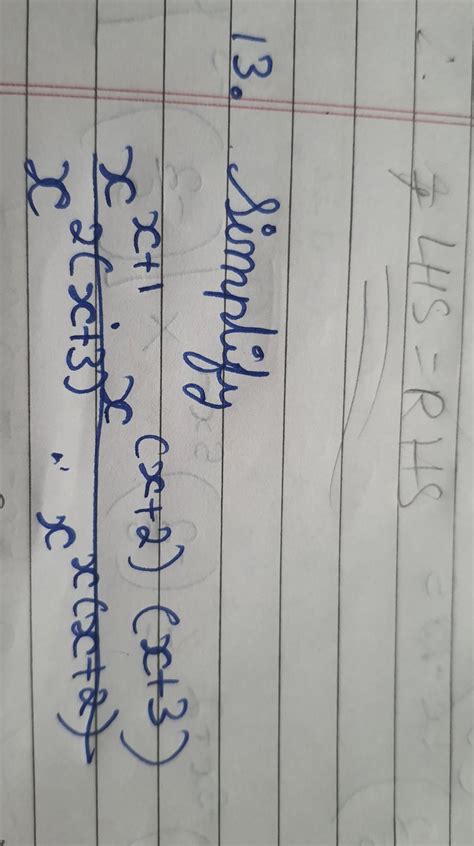 ∴ LHS = RHS
13. Simplify
x^{x+1} . x^{(x+2)(x+3)}
x^{2(x+3)} . x^{x(x+2)}